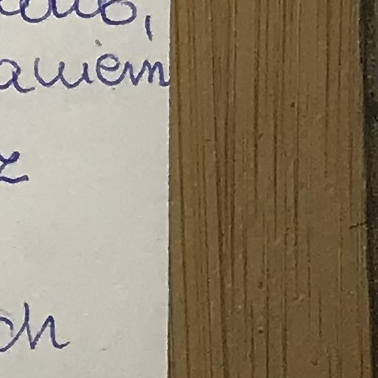 awiem
z
ch